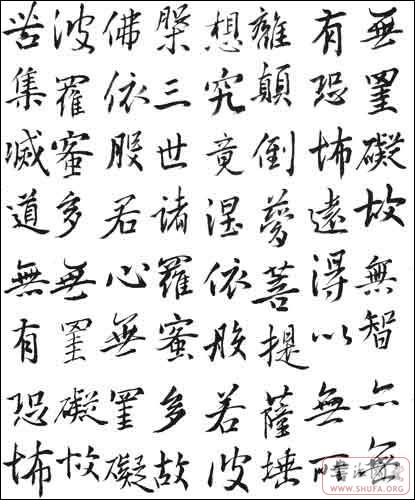 無罣礙故無智亦無
有恐怖遠得以無所
離顛倒夢菩提薩埵
想究竟涅依般若波
槃三世諸羅蜜多故
佛依般若心無罣礙
波羅蜜多無罣礙故
苦集滅道無有恐怖
WWW.SHUFA.ORG